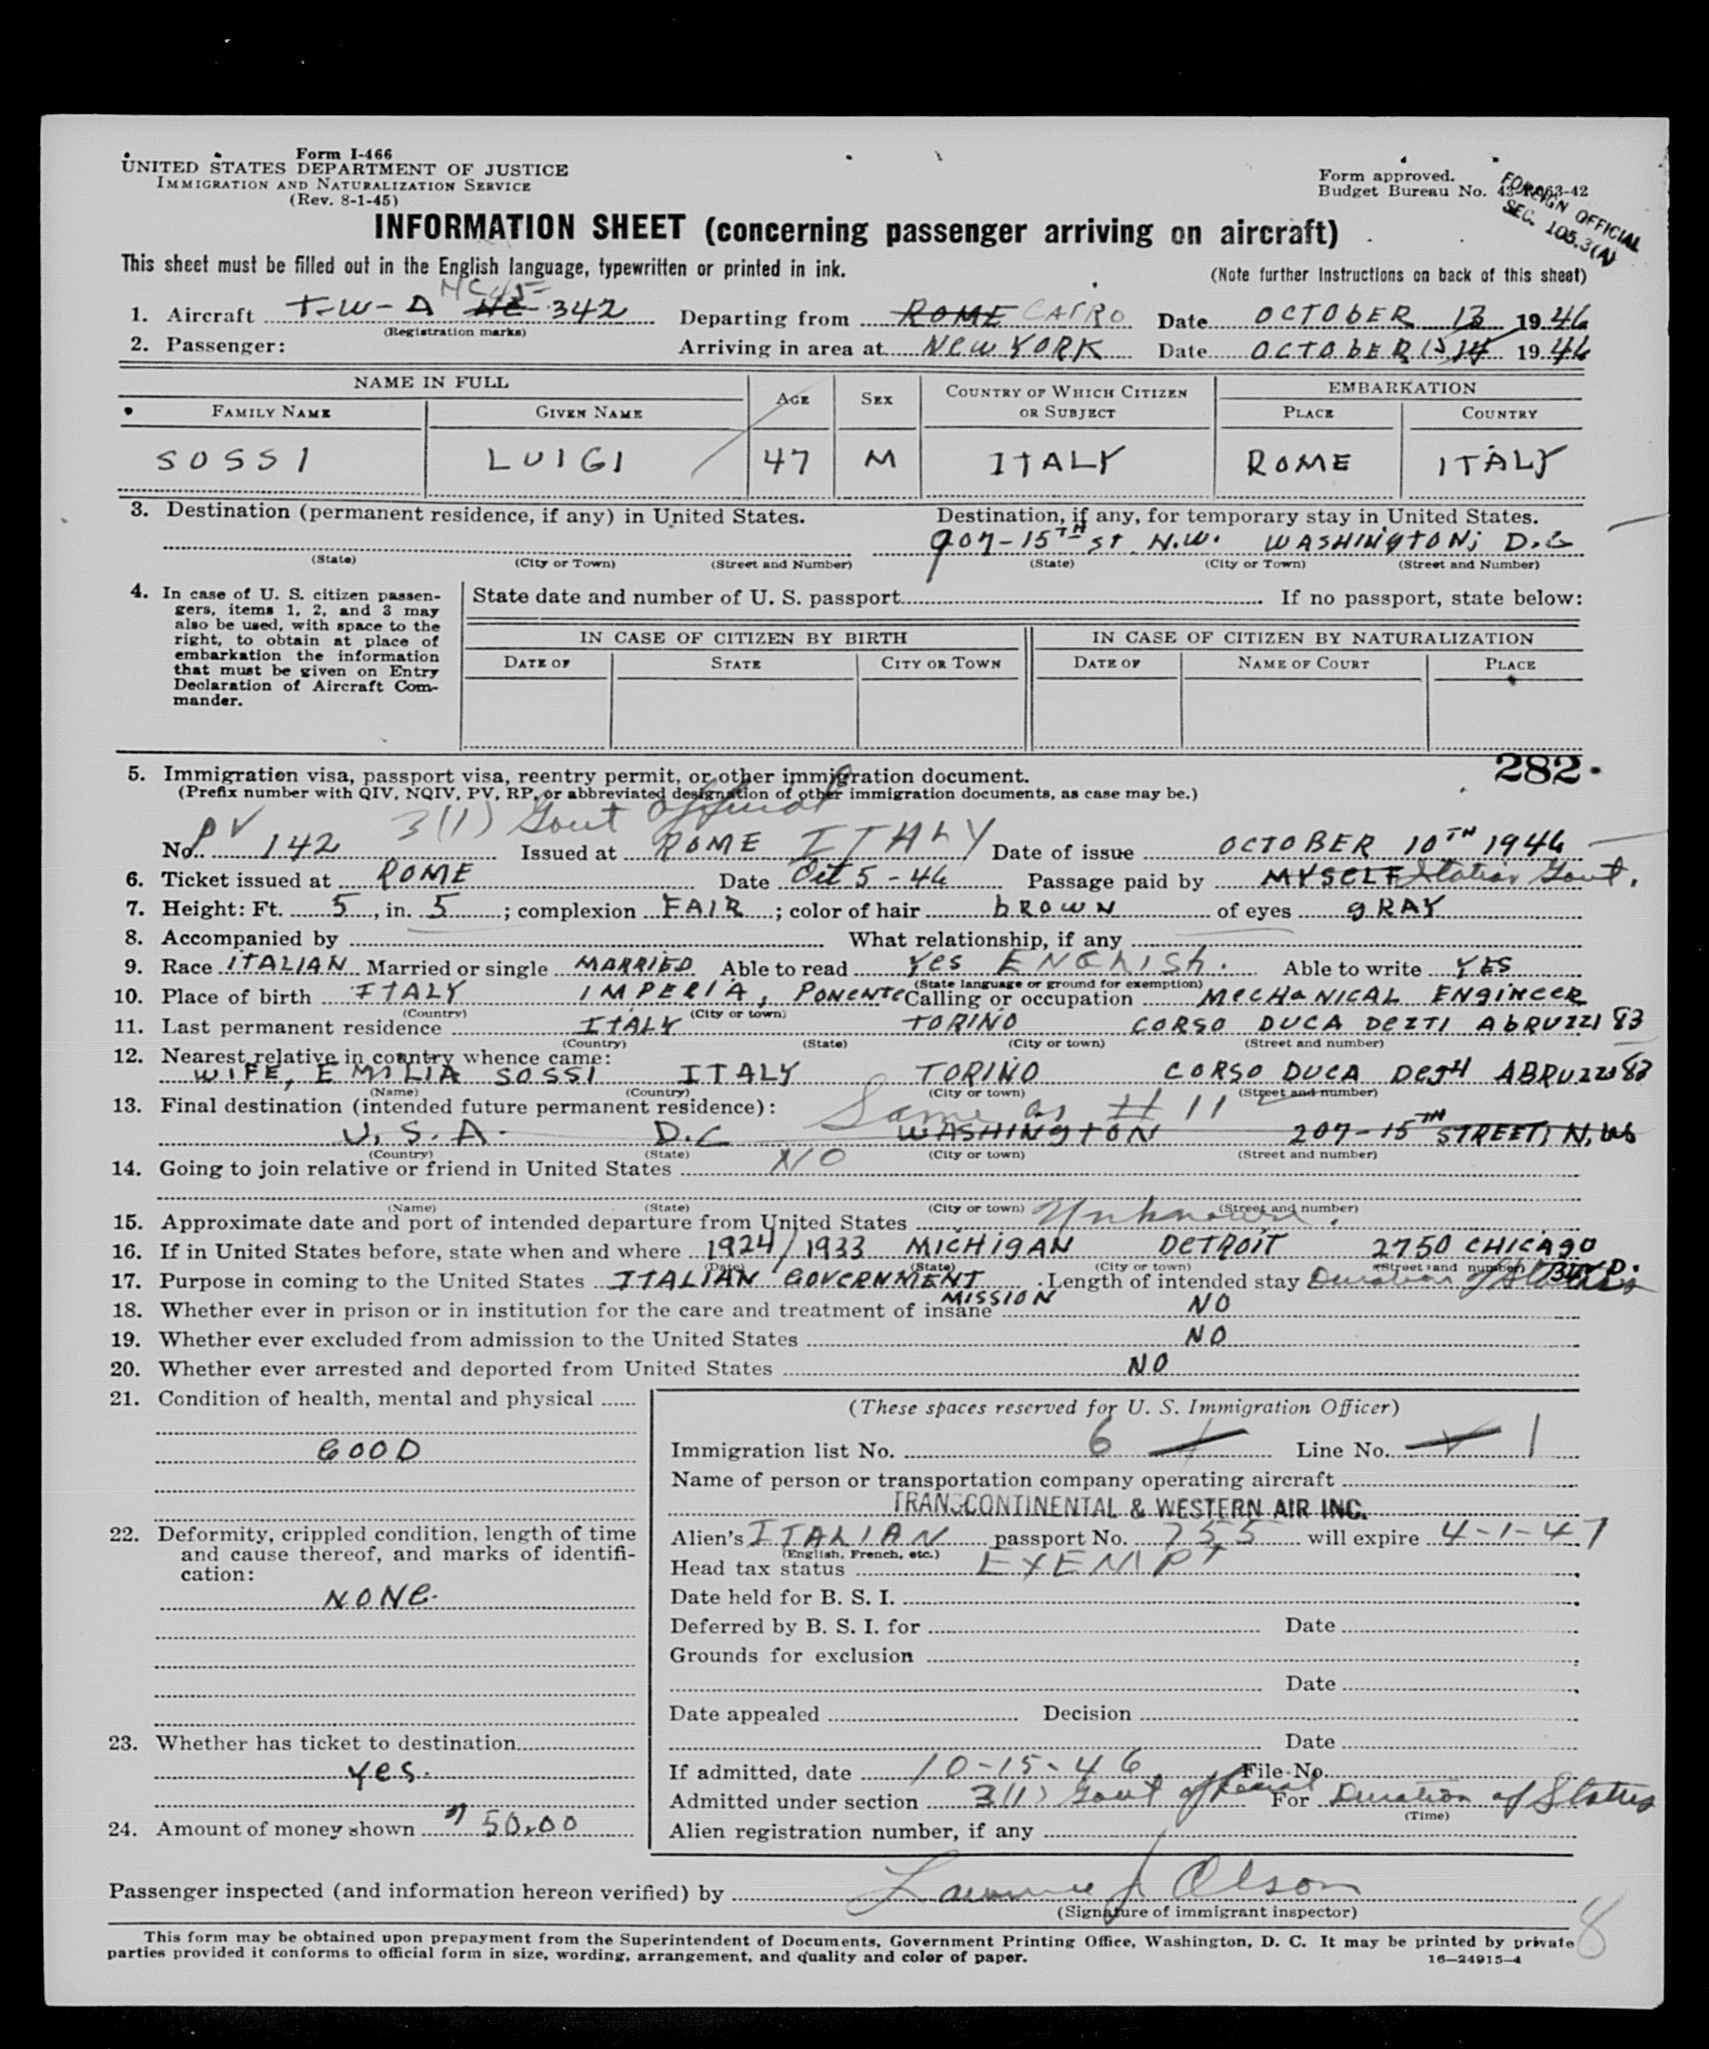 Form I-466
UNITED STATES DEPARTMENT OF JUSTICE
IMMIGRATION AND NATURALIZATION SERVICE
(Rev. 8-1-45)
Form approved.
Budget Bureau No. 43-R063-42
FOREIGN OFFICIAL
SEC. 105.3(A)
INFORMATION SHEET (concerning passenger arriving on aircraft)
This sheet must be filled out in the English language, typewritten or printed in ink.
(Note further Instructions on back of this sheet)
NC45-
1. Aircraft T-W-A NC 342 Departing from ROME CAIRO Date OCTOBER 13 1946
(Registration marks)
2. Passenger: Arriving in area at NEW YORK Date OCTOBER 15 14 1946
NAME IN FULL AGE SEX COUNTRY OF WHICH CITIZEN OR SUBJECT EMBARKATION
FAMILY NAME GIVEN NAME PLACE COUNTRY
SOSSI LUIGI 47 M ITALY ROME ITALY
3. Destination (permanent residence, if any) in United States. Destination, if any, for temporary stay in United States.
907-15TH ST N.W. WASHINGTON; D.C
(State) (City or Town) (Street and Number) (State) (City or Town) (Street and Number)
4. In case of U. S. citizen passengers, items 1, 2, and 3 may also be used, with space to the right, to obtain at place of embarkation the information that must be given on Entry Declaration of Aircraft Commander.
State date and number of U. S. passport If no passport, state below:
IN CASE OF CITIZEN BY BIRTH IN CASE OF CITIZEN BY NATURALIZATION
DATE OF STATE CITY OR TOWN DATE OF NAME OF COURT PLACE
282
5. Immigration visa, passport visa, reentry permit, or other immigration document.
(Prefix number with QIV, NQIV, PV, RP, or abbreviated designation of other immigration documents, as case may be.)
3(1) Gout official
No. PV 142 Issued at ROME ITALY Date of issue OCTOBER 10TH 1946
6. Ticket issued at ROME Date Oct 5-46 Passage paid by MYSELF Italian Gout.
7. Height: Ft. 5, in. 5; complexion FAIR; color of hair BROWN of eyes GRAY
8. Accompanied by What relationship, if any
9. Race ITALIAN Married or single MARRIED Able to read Yes ENGLISH. Able to write YES
(State language or ground for exemption)
10. Place of birth ITALY IMPERIA, PONENTE Calling or occupation MECHANICAL ENGINEER
(Country) (City or town)
11. Last permanent residence ITALY TORINO CORSO DUCA DEZTI ABRUZZI 83
(Country) (State) (City or town) (Street and number)
12. Nearest relative in country whence came:
WIFE, EMILIA SOSSI ITALY TORINO CORSO DUCA ABRUZZI 83
(Name) (Country) (City or town) (Street and number)
13. Final destination (intended future permanent residence): Same as #11
U.S.A. D.C WASHINGTON 207-15TH STREET, N.W
(Country) (State) (City or town) (Street and number)
14. Going to join relative or friend in United States NO
(Name) (State) (City or town) (Street and number)
15. Approximate date and port of intended departure from United States Unknown.
16. If in United States before, state when and where 1924/1933 MICHIGAN DETROIT 2750 CHICAGO BLVD.
(Date) (State) (City or town) (Street and number)
17. Purpose in coming to the United States ITALIAN GOVERNMENT MISSION Length of intended stay Duration of Status
18. Whether ever in prison or in institution for the care and treatment of insane NO
19. Whether ever excluded from admission to the United States NO
20. Whether ever arrested and deported from United States NO
21. Condition of health, mental and physical
GOOD
22. Deformity, crippled condition, length of time and cause thereof, and marks of identification:
NONE.
23. Whether has ticket to destination
Yes.
24. Amount of money shown 50.00
(These spaces reserved for U. S. Immigration Officer)
Immigration list No. 6 Line No. 1
Name of person or transportation company operating aircraft
TRANSCONTINENTAL & WESTERN AIR INC.
Alien's ITALIAN passport No. 755 will expire 4-1-47
(English, French, etc.)
Head tax status EXEMPT
Date held for B. S. I.
Deferred by B. S. I. for Date
Grounds for exclusion
Date
Date appealed Decision
Date
If admitted, date 10-15-46 File No.
Admitted under section 3(1) Gout official For Duration of Status
(Time)
Alien registration number, if any
Passenger inspected (and information hereon verified) by Lawrence J Olson
(Signature of immigrant inspector)
8
This form may be obtained upon prepayment from the Superintendent of Documents, Government Printing Office, Washington, D. C. It may be printed by private
parties provided it conforms to official form in size, wording, arrangement, and quality and color of paper.
16—24915-4